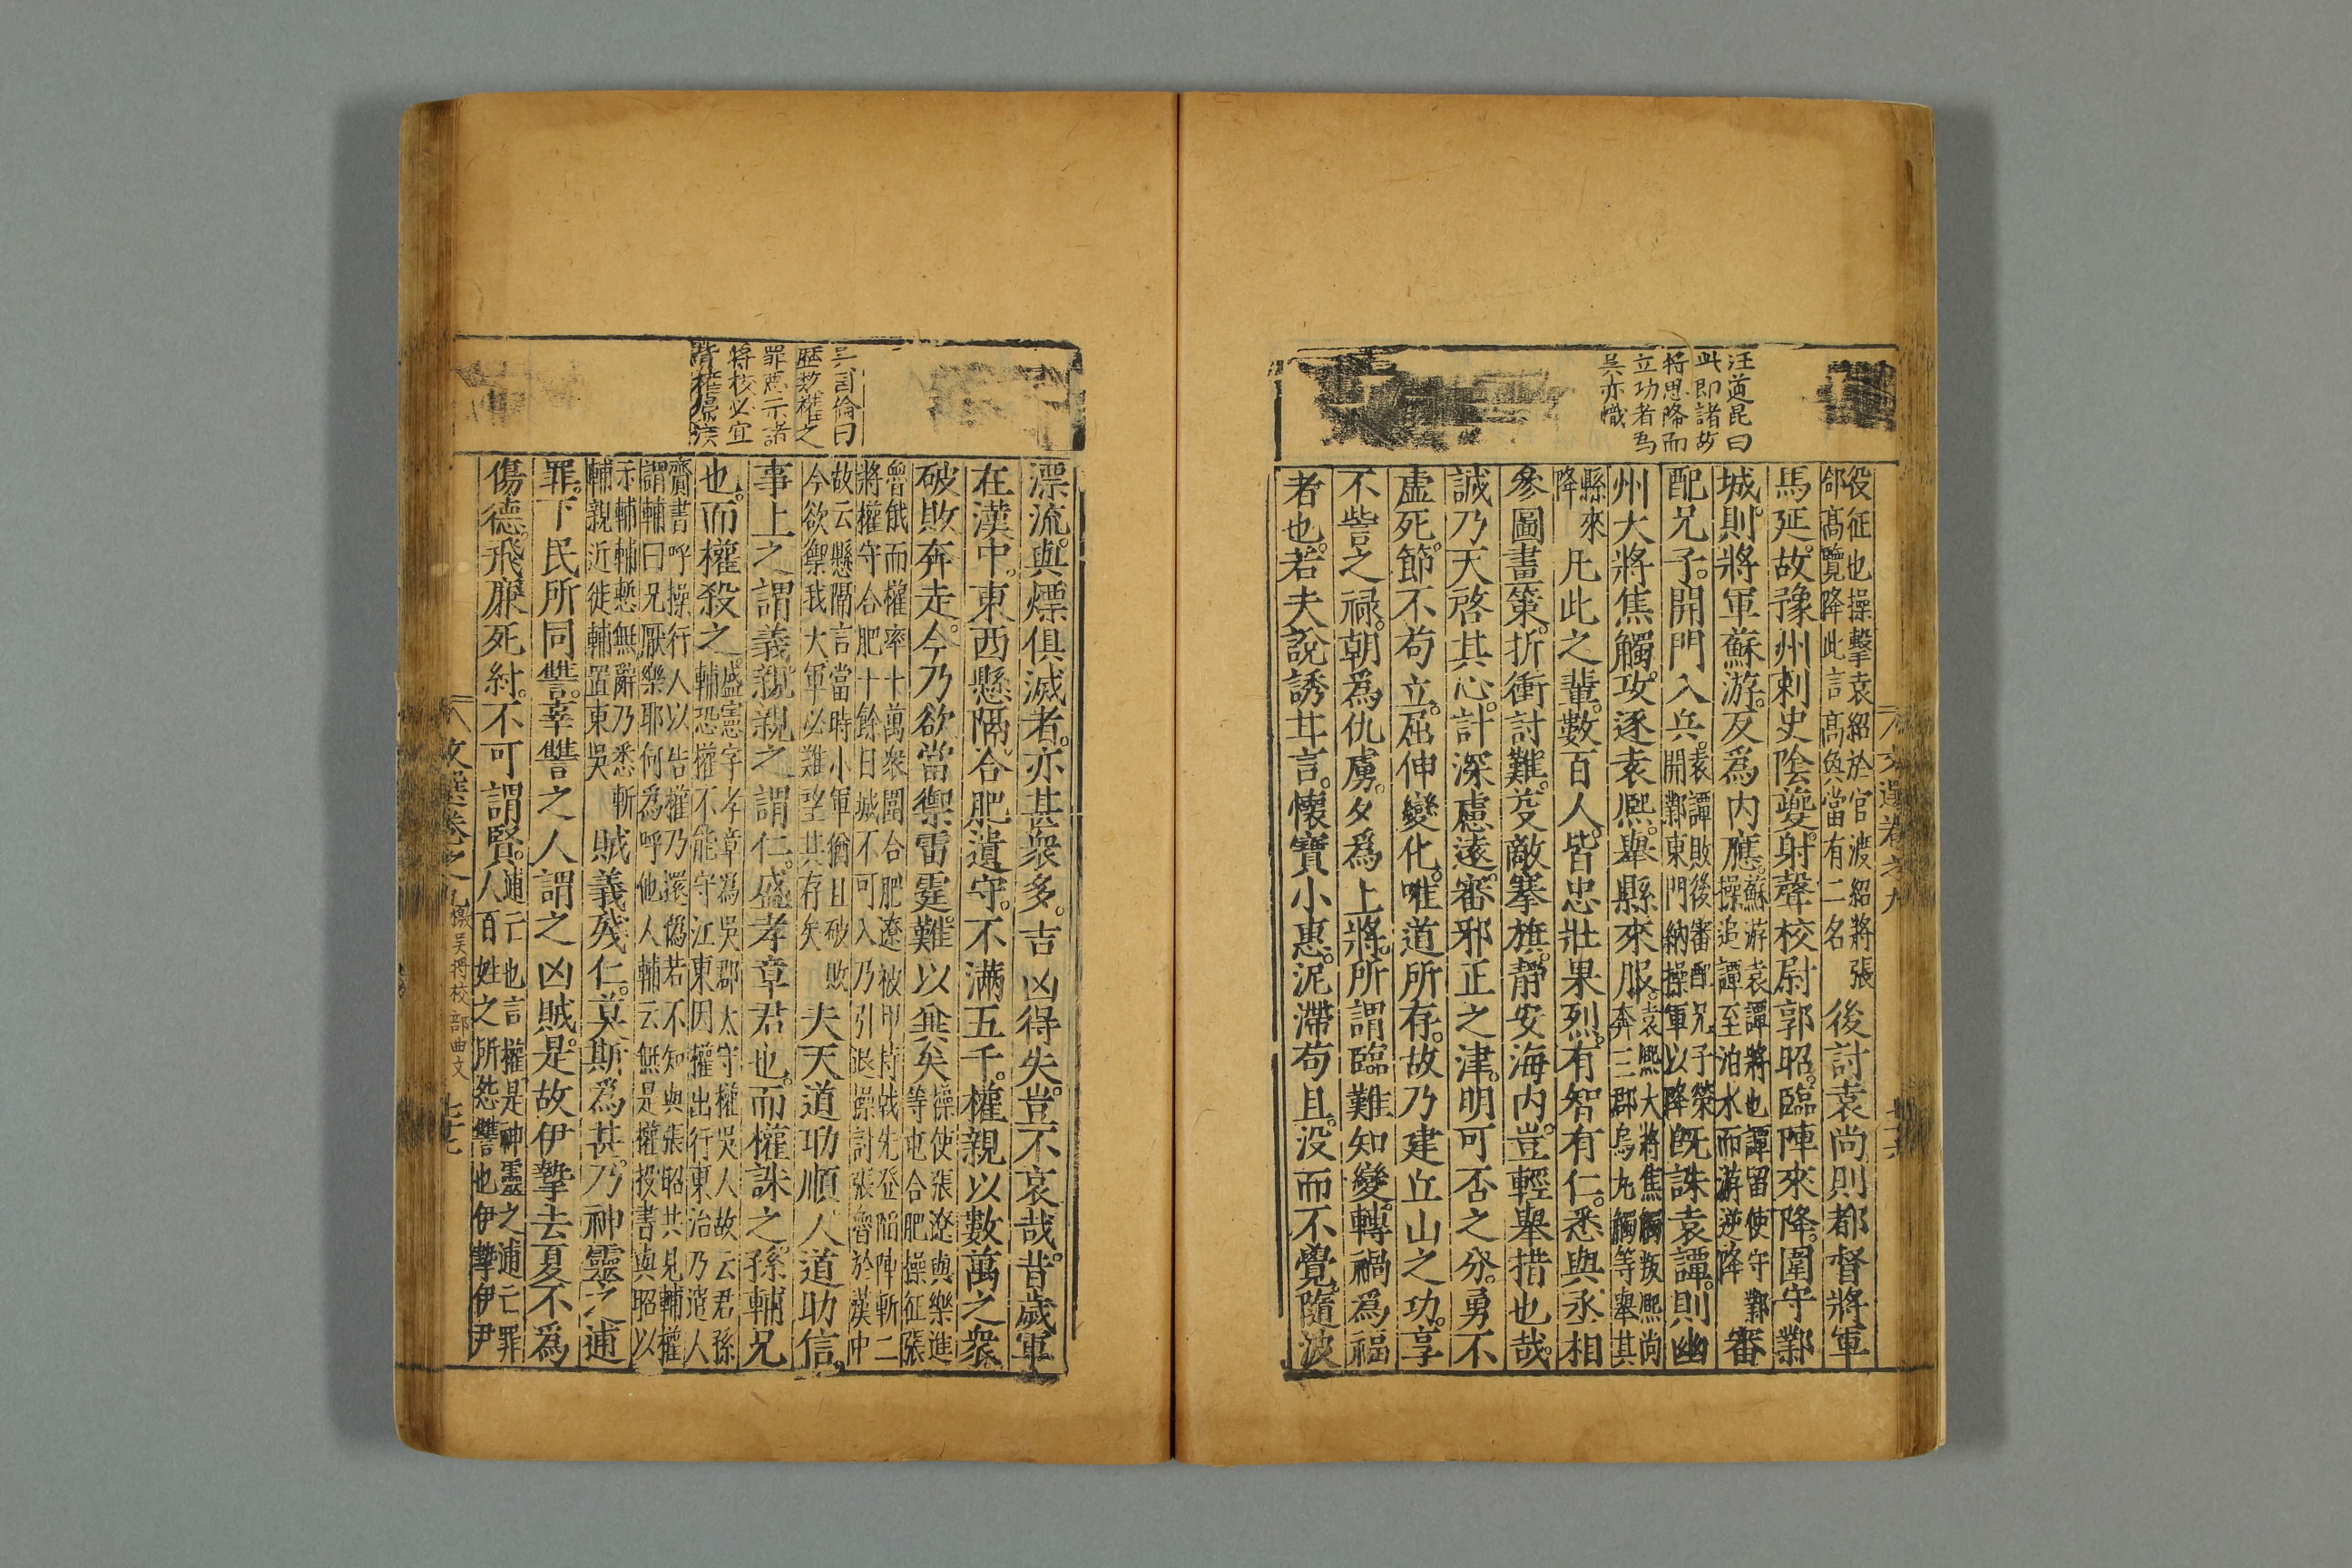 汪道昆曰
此即諸故
将思降而
立功者爲
吳亦幟
役征也操擊袁紹於官渡紹將張
郃高覽降此言高奐當有二名
後討袁尚則都督將軍
馬延故豫州刺史陰夔射聲校尉郭昭臨陣來降圍守鄴
城則將軍蘇游反爲内應
蘇游袁譚將也譚留使守鄴
操追譚至泊水而游逆降
審
配兄子開門入兵
袁譚敗後審配兄子榮
開鄴東門納操軍以降
既誅袁譚則幽
州大將焦觸攻逐袁熙舉縣來服
袁熙大將焦觸叛熙尚
奔三郡烏丸觸等舉其
縣來
降
凡此之輩數百人皆忠壯果烈有智有仁悉與丞相
參圖畫策折衝討難芟敵搴旗靜安海内豈輕舉措也哉
誠乃天啓其心計深慮遠審邪正之津明可否之分勇不
虛死節不苟立屈伸變化唯道所存故乃建丘山之功享
不訾之祿朝爲仇虜夕爲上將所謂臨難知變轉禍爲福
者也若夫說誘甘言懷寶小惠泥滯苟且没而不覺隨波
漂流與熛俱滅者亦甚衆多吉凶得失豈不哀哉昔歲軍
在漢中東西懸隔合肥遺守不滿五千權親以數萬之衆
破敗奔走今乃欲當禦雷霆難以兾矣
操使張遼與樂進
等屯合肥操征張
魯俄而權率十萬衆圍合肥遼被甲持戟先登陷陣斬二
將權守合肥十餘日城不可入乃引退操討張魯於漢中
故云懸隔言當時小軍猶且破敗
今欲禦我大軍必難望其存矣
夫天道助順人道助信
事上之謂義親親之謂仁盛孝章君也而權誅之孫輔兄
也而權殺之
盛憲字孝章爲吳郡太守權吳人故云君孫
輔恐權不能守江東因權出行東治乃遣人
齎書呼操行人以告權乃還僞若不知與張昭共見輔權
謂輔曰兄厭樂耶何爲呼他人輔云無是權投書與昭以
示輔輔慙無辭乃悉斬
輔親近徙輔置東吳
賊義殘仁莫斯爲甚乃神靈之逋
罪下民所同讐辜讐之人謂之凶賊是故伊摯去夏不爲
傷德飛廉死紂不可謂賢
逋亡也言權是神靈之逋亡罪
人百姓之所怨讐也伊摯伊尹